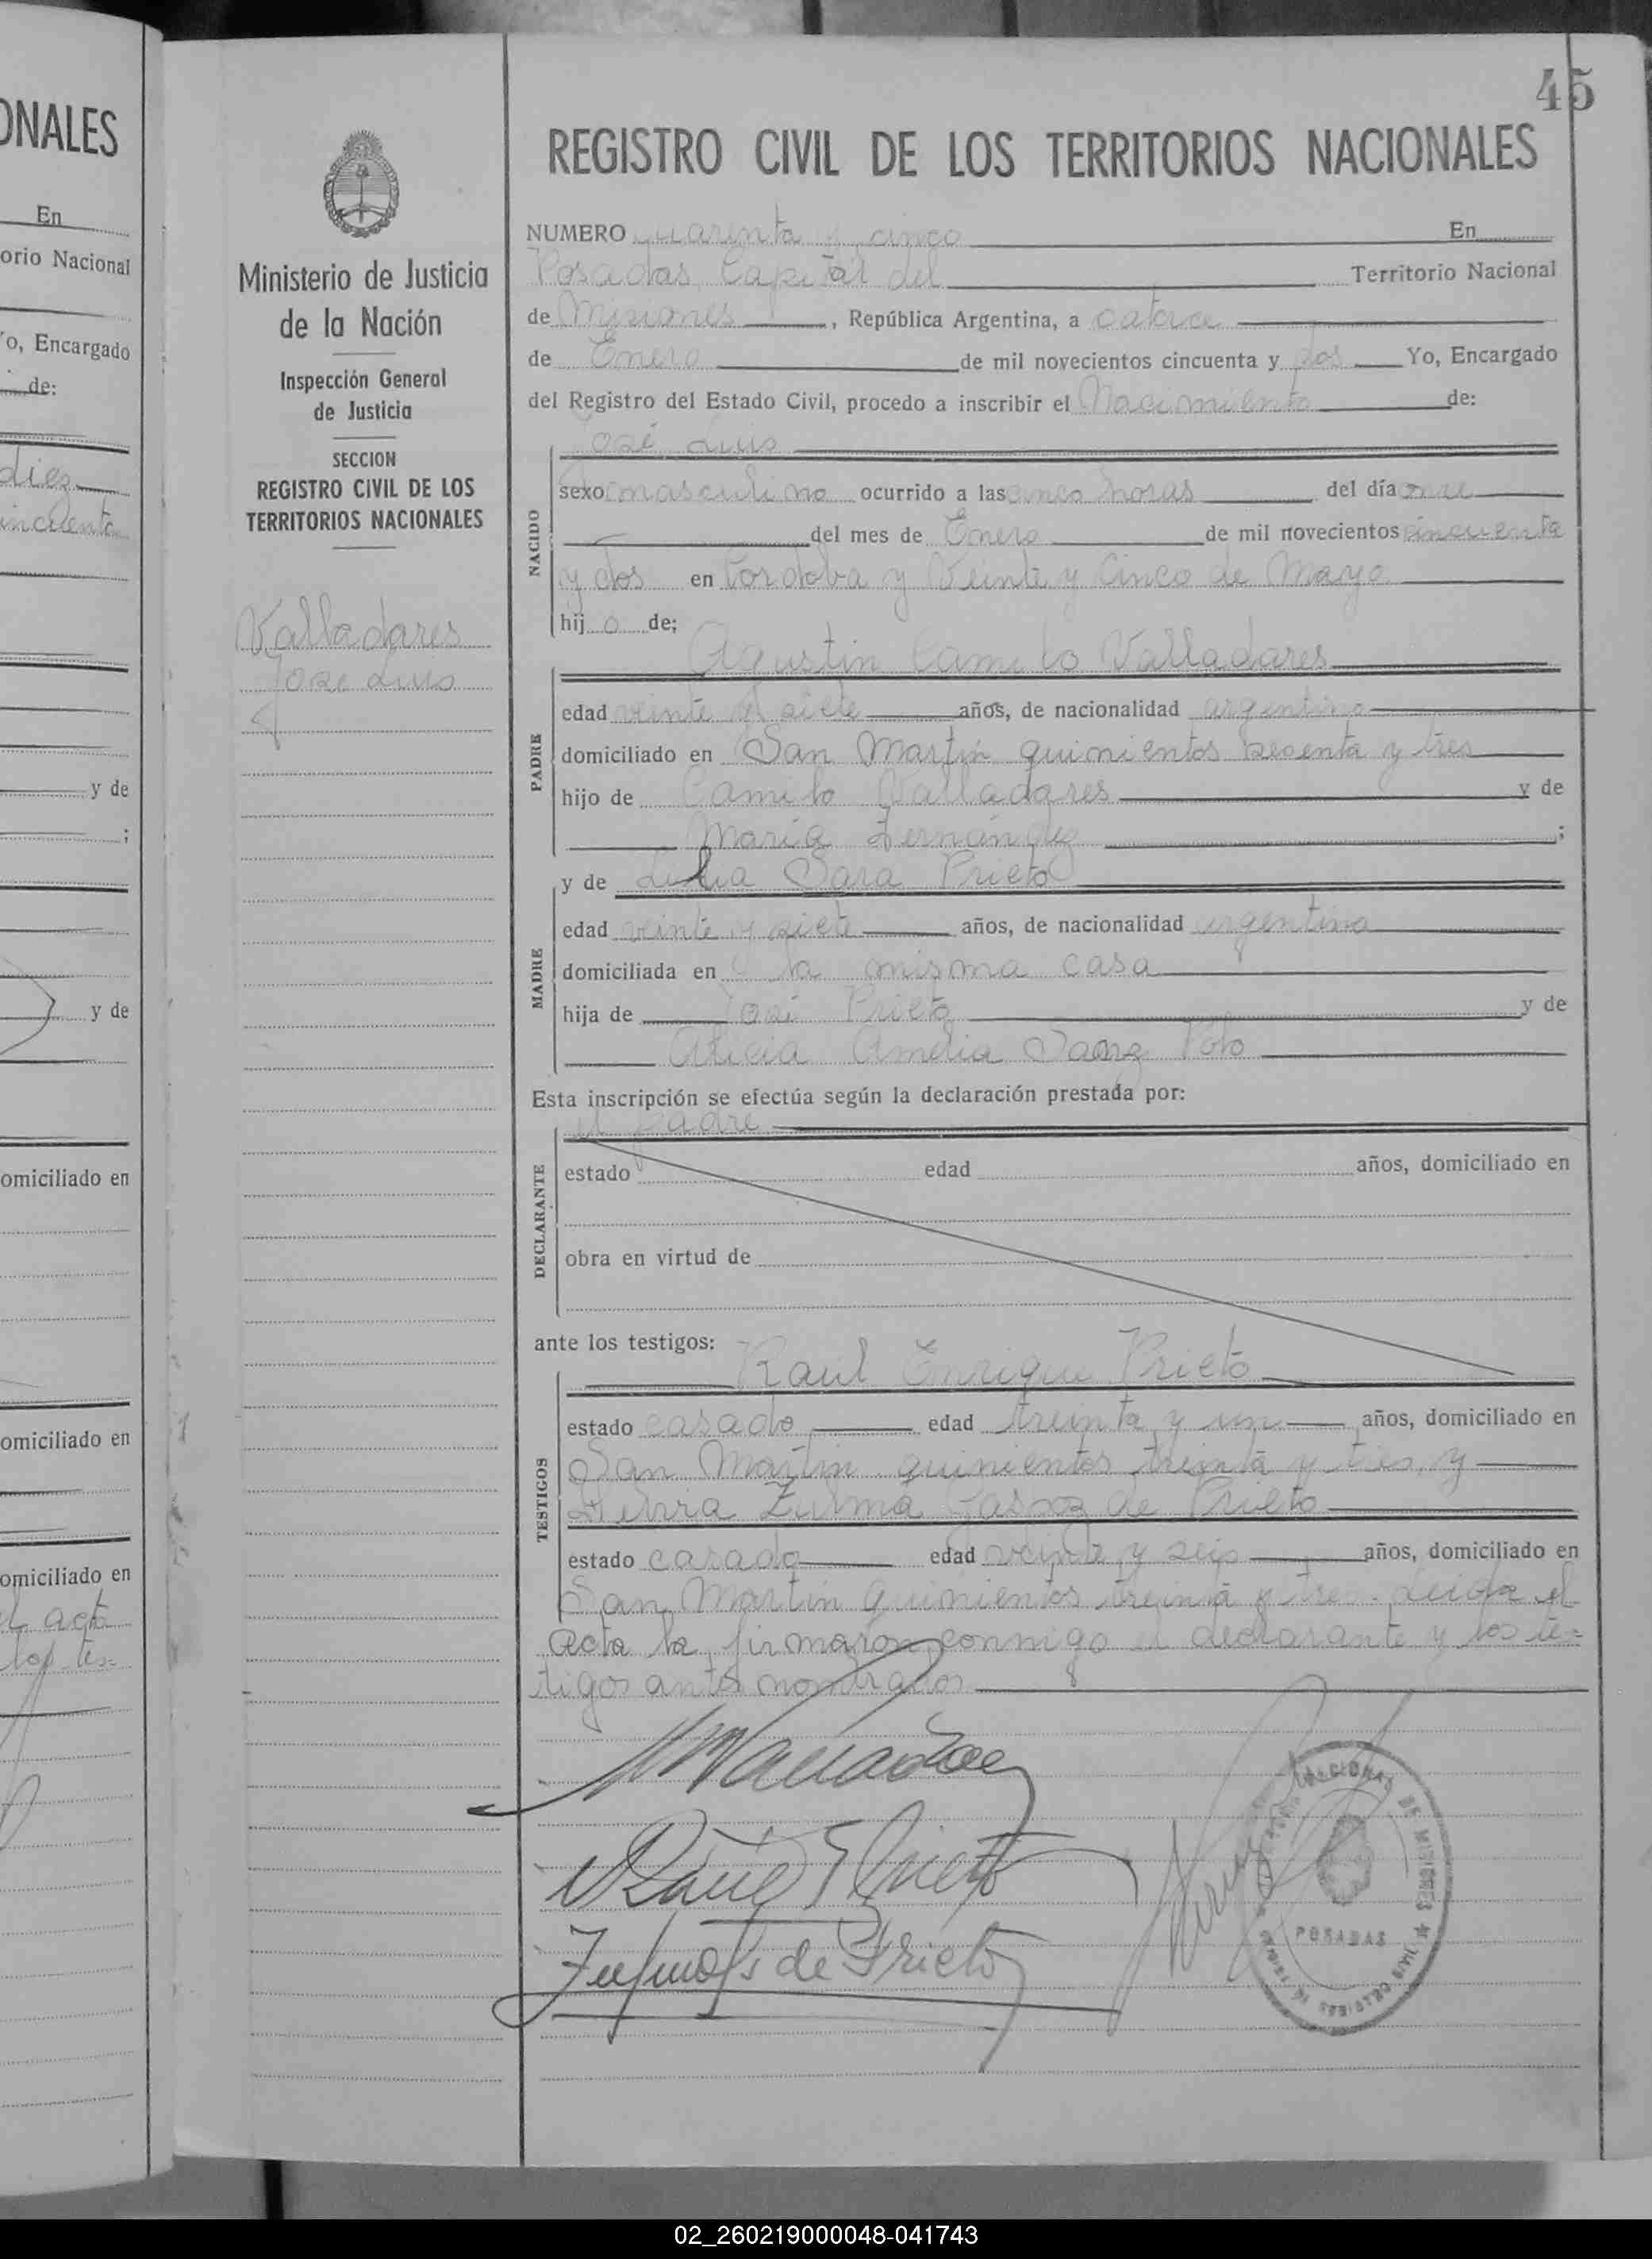 ONALES
En
orio Nacional
o, Encargado
de:
diez
incuenta
y de
;
y de
omiciliado en
omiciliado en
omiciliado en
el acta
los tes=
45
Ministerio de Justicia
de la Nación
Inspección General
de Justicia
SECCION
REGISTRO CIVIL DE LOS
TERRITORIOS NACIONALES
Valladares
José Luis
REGISTRO CIVIL DE LOS TERRITORIOS NACIONALES
NUMERO cuarenta y cinco En
Posadas Capital del Territorio Nacional
de Misiones, República Argentina, a catorce
de Enero de mil novecientos cincuenta y dos Yo, Encargado
del Registro del Estado Civil, procedo a inscribir el Nacimiento de:
José Luis
NACIDO
sexo masculino ocurrido a las cinco horas del día once
del mes de Enero de mil novecientos cincuenta
y dos en Cordoba y Veinte y Cinco de Mayo
hij o de;
Agustin Camilo Valladares
PADRE
edad veinte y siete años, de nacionalidad argentino
domiciliado en San Martin quinientos sesenta y tres
hijo de Camilo Valladares y de
María Fernández ;
y de Lilia Sara Prieto
MADRE
edad veinte y siete años, de nacionalidad argentina
domiciliada en la misma casa
hija de José Prieto y de
Alicia Amelia Saenz
Esta inscripción se efectúa según la declaración prestada por:
el padre
DECLARANTE
estado edad años, domiciliado en
obra en virtud de
ante los testigos:
Raul Enrique Prieto
TESTIGOS
estado casado edad treinta y un años, domiciliado en
San Martin quinientos treinta y tres y
Zulma de Prieto
estado casada edad veinte y seis años, domiciliado en
San Martin quinientos treinta y tres. Leida el
acta la firmaron conmigo el declarante y los tes=
tigos antes nombrados
Raúl E Prieto
de Prieto
POSADAS
02_260219000048-041743